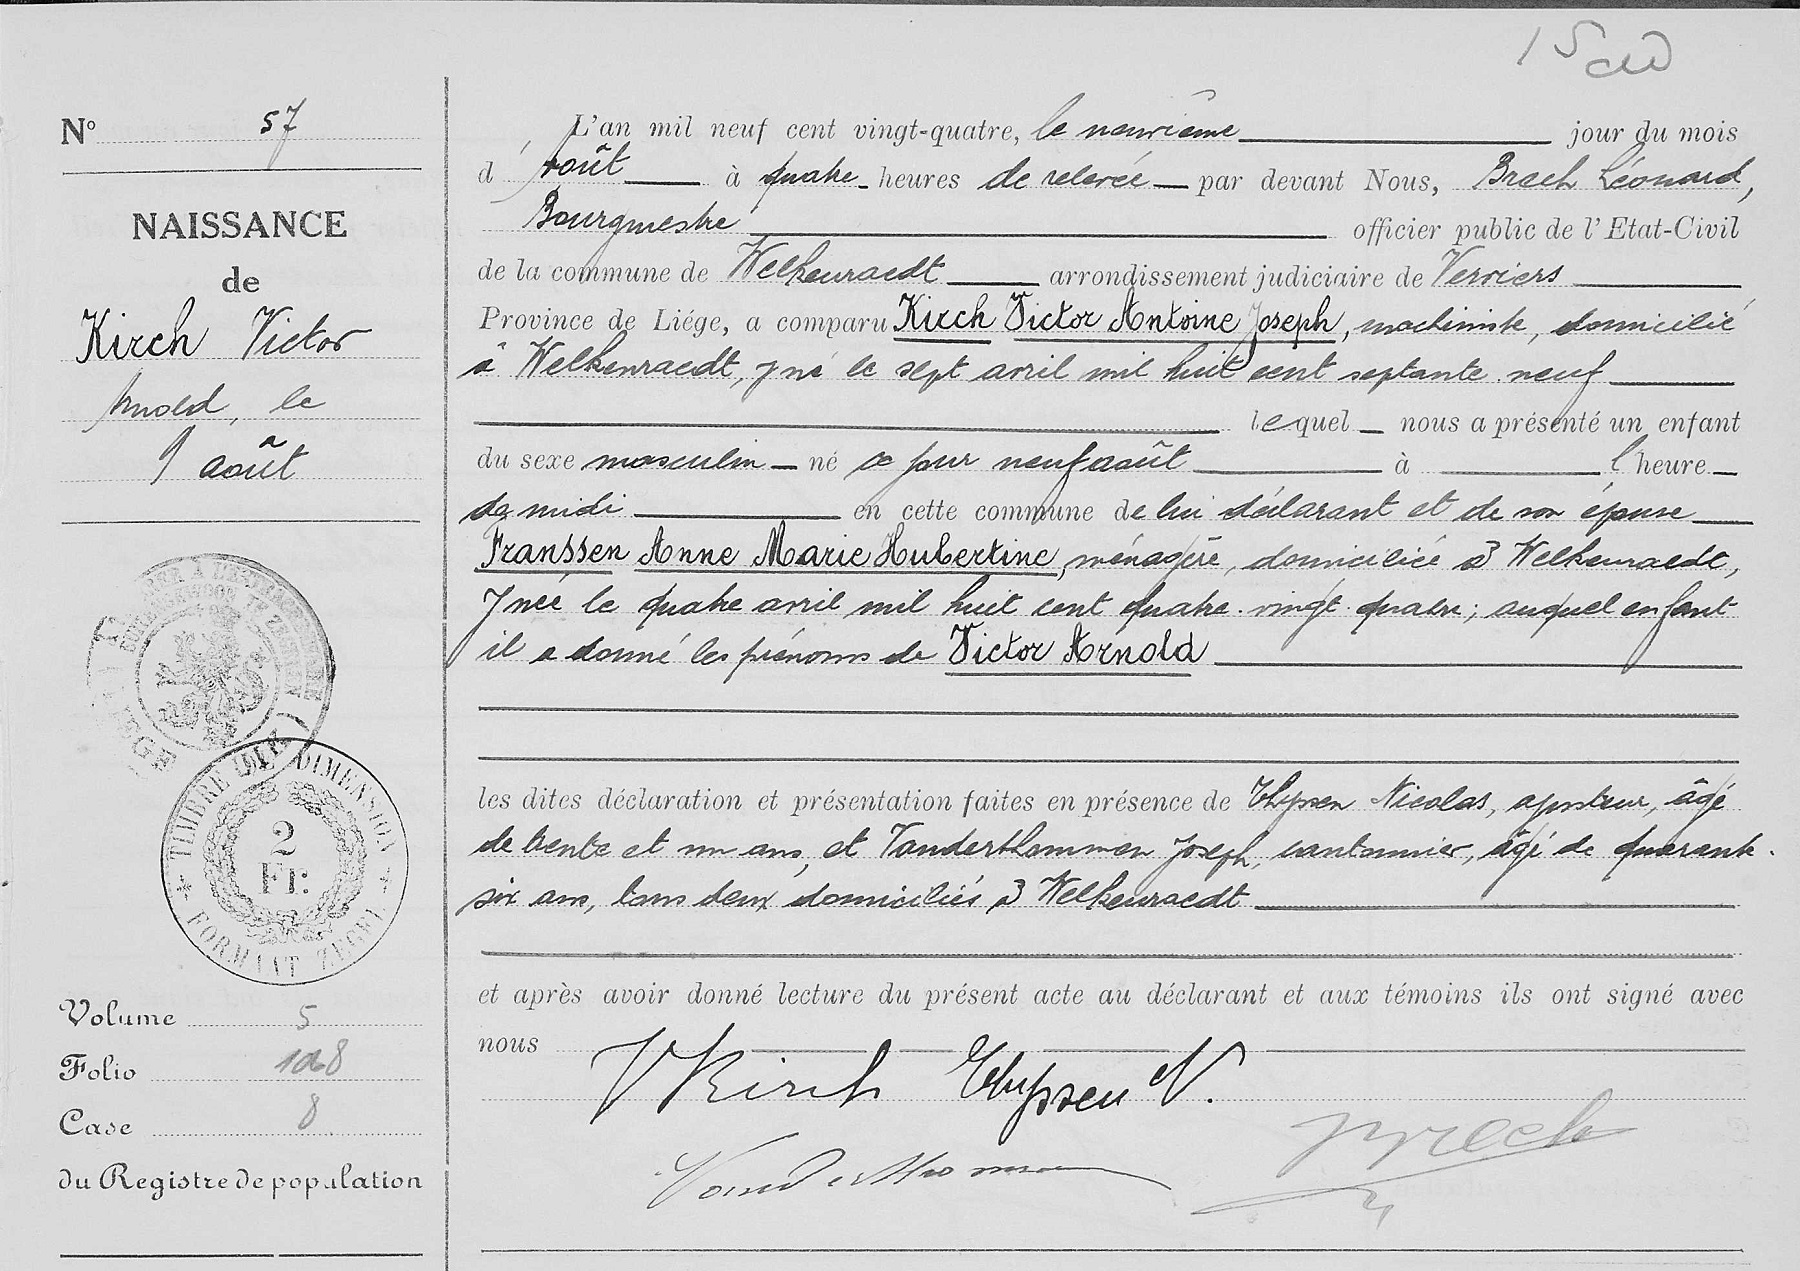 N° 57
NAISSANCE
de
Kirch Victor
Arnold, le
9 août
TIMBRE DE DIMENSION
2
Fr.
FORMAAT ZEGEL
Volume 5
Folio 108
Case 8
du Registre de population
L'an mil neuf cent vingt-quatre, le neuvième jour du mois
d'août à quatre heures de relevée par devant Nous, Brach Léonard,
Bourgmestre officier public de l'Etat-Civil
de la commune de Welkenraedt arrondissement judiciaire de Verviers
Province de Liége, a comparu Kirch Victor Antoine Joseph, machiniste, domicilié
à Welkenraedt, y né le sept avril mil huit cent septante neuf
lequel nous a présenté un enfant
du sexe masculin né ce jour neuf août à l'heure
de midi en cette commune de lui déclarant et de son épouse
Franssen Anne Marie Hubertine, ménagère, domiciliée à Welkenraedt,
y née le quatre avril mil huit cent quatre-vingt-quatre; auquel enfant
il a donné les prénoms de Victor Arnold
les dites déclaration et présentation faites en présence de Thyssen Nicolas, ajusteur, âgé
de trente et un ans, et Vanderthommen Joseph, cantonnier, âgé de quarante-
six ans, tous deux domiciliés à Welkenraedt
et après avoir donné lecture du présent acte au déclarant et aux témoins ils ont signé avec
nous
VKirch Thyssen N.